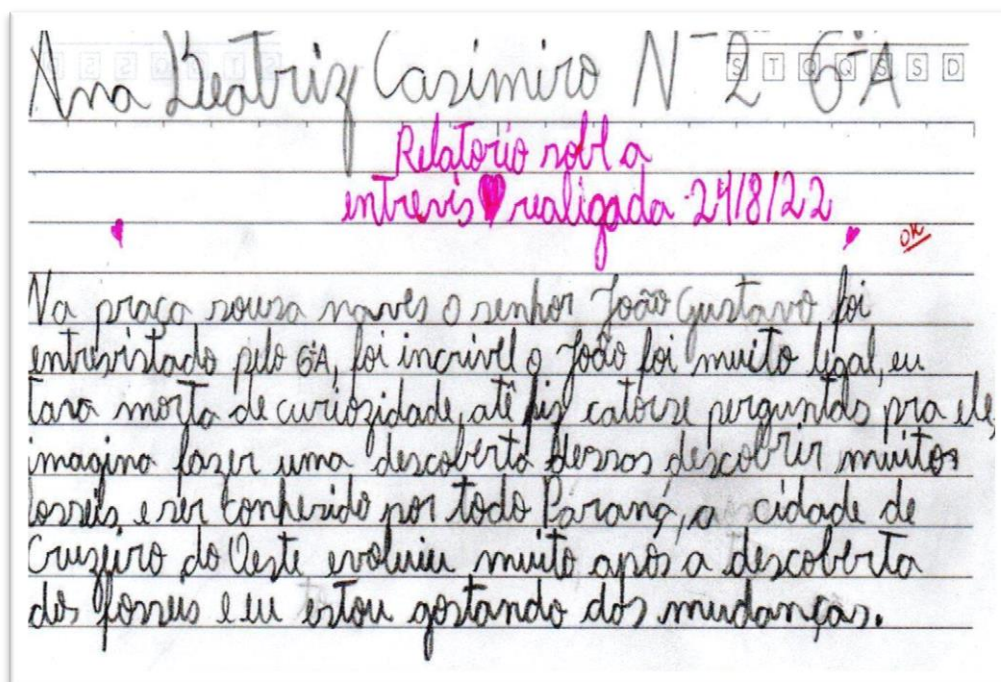 Ana Beatriz Casimiro Nº 2 6ºA
S T Q Q S S D
Relatório sobre a
entrevis realizada 24/8/22
OK
Na praça souza naves o senhor João Gustavo foi
entrevistado pelo 6ºA, foi incrivel o João foi muito legal, eu
tava morta de curiozidade, até fiz catorse perguntas pra ele,
imagina fazer uma descoberta dessas descobrir muitos
fosseis, e ser conhesido por todo Paraná, a cidade de
Cruzeiro do Oeste evoluiu muito após a descoberta
dos fosseis e eu estou gostando das mudanças.